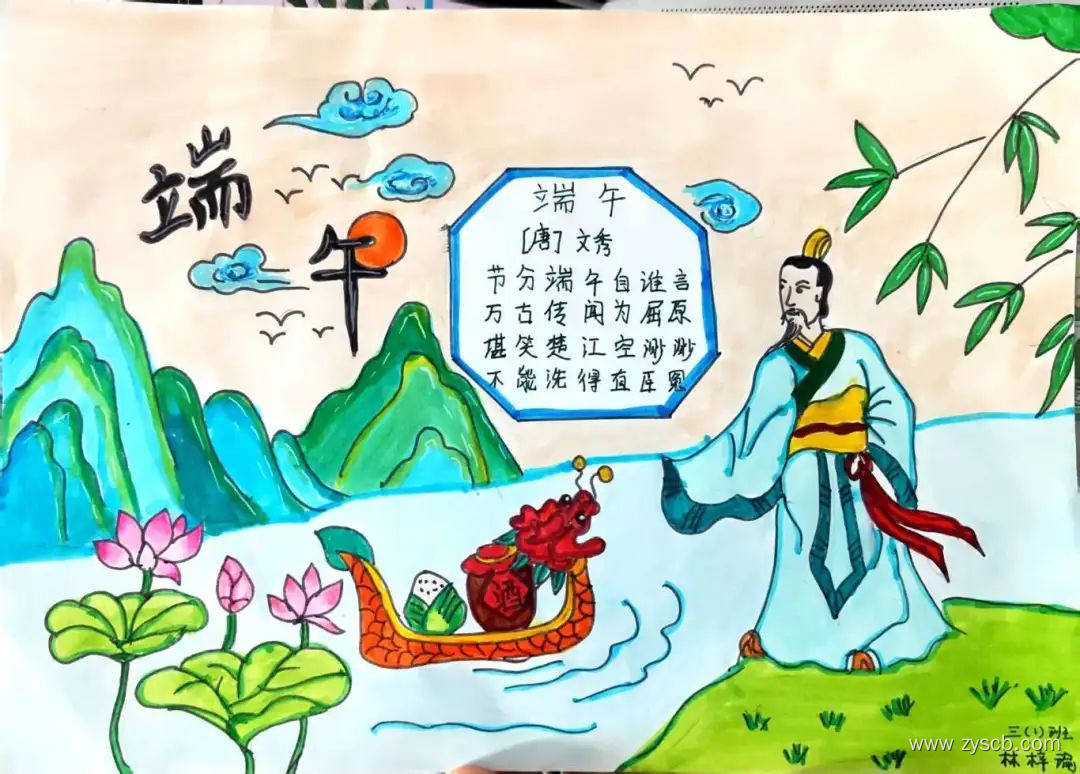 端午
端午
[唐] 文秀
节分端午自谁言
万古传闻为屈原
堪笑楚江空渺渺
不能洗得直臣冤
酒
三(1)班
林梓
www.zyscb.com